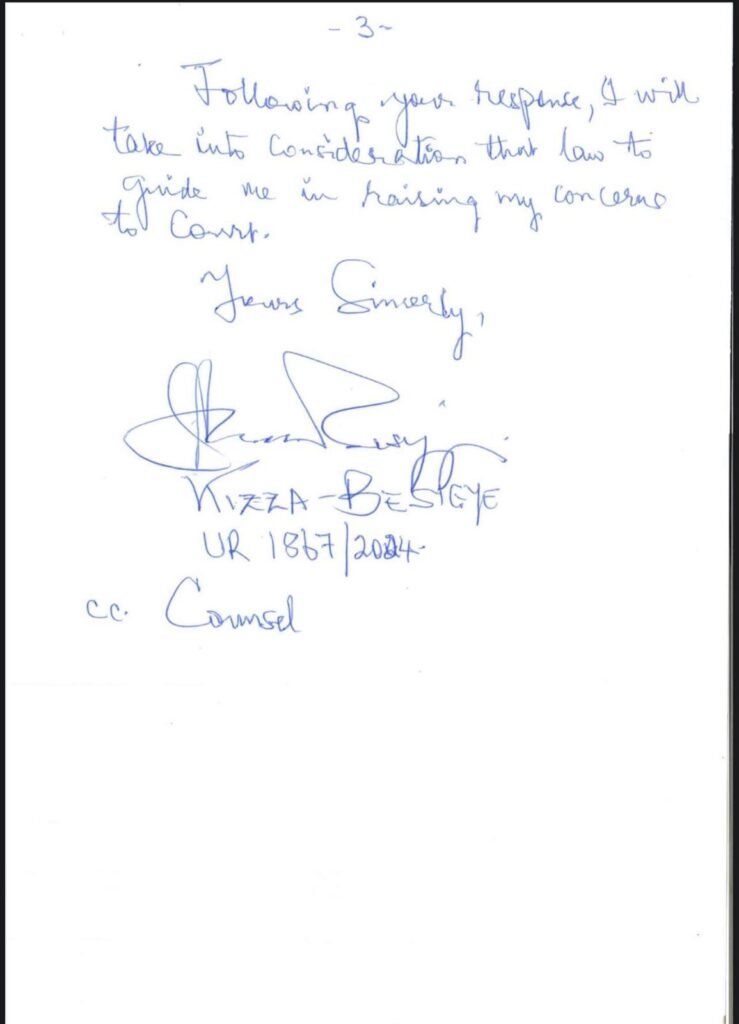 - 3 -
Following your response, I will
take into consideration that law to
guide me in raising my concerns
to Court.
Yours Sincerely,
KIZZA-BESIGYE
UR 1867/2024.
cc. Counsel